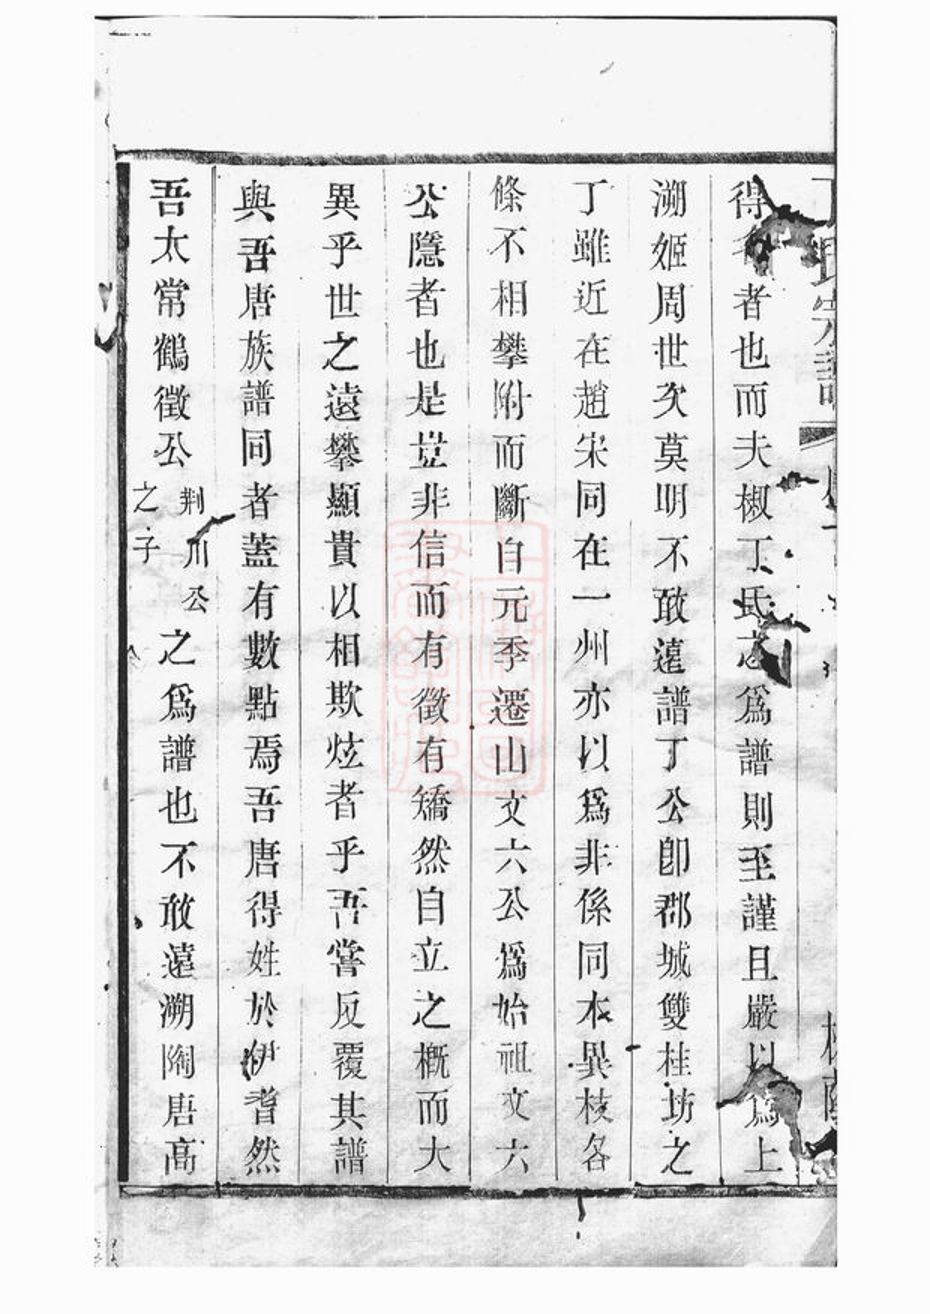 丁氏宗譜
得者也而夫椒丁氏之爲譜則至謹且嚴以爲上
溯姬周世次莫明不敢遠譜丁公卽郡城雙桂坊之
丁雖近在趙宋同在一州亦以爲非係同本異枝各
條不相攀附而斷自元季遷山文六公爲始祖文六
公隱者也是豈非信而有徵有矯然自立之槪而大
異乎世之遠攀顯貴以相欺炫者乎吾嘗反覆其譜
與吾唐族譜同者蓋有數點焉吾唐得姓於伊耆然
吾太常鶴徵公荆川公之子之爲譜也不敢遠溯陶唐高